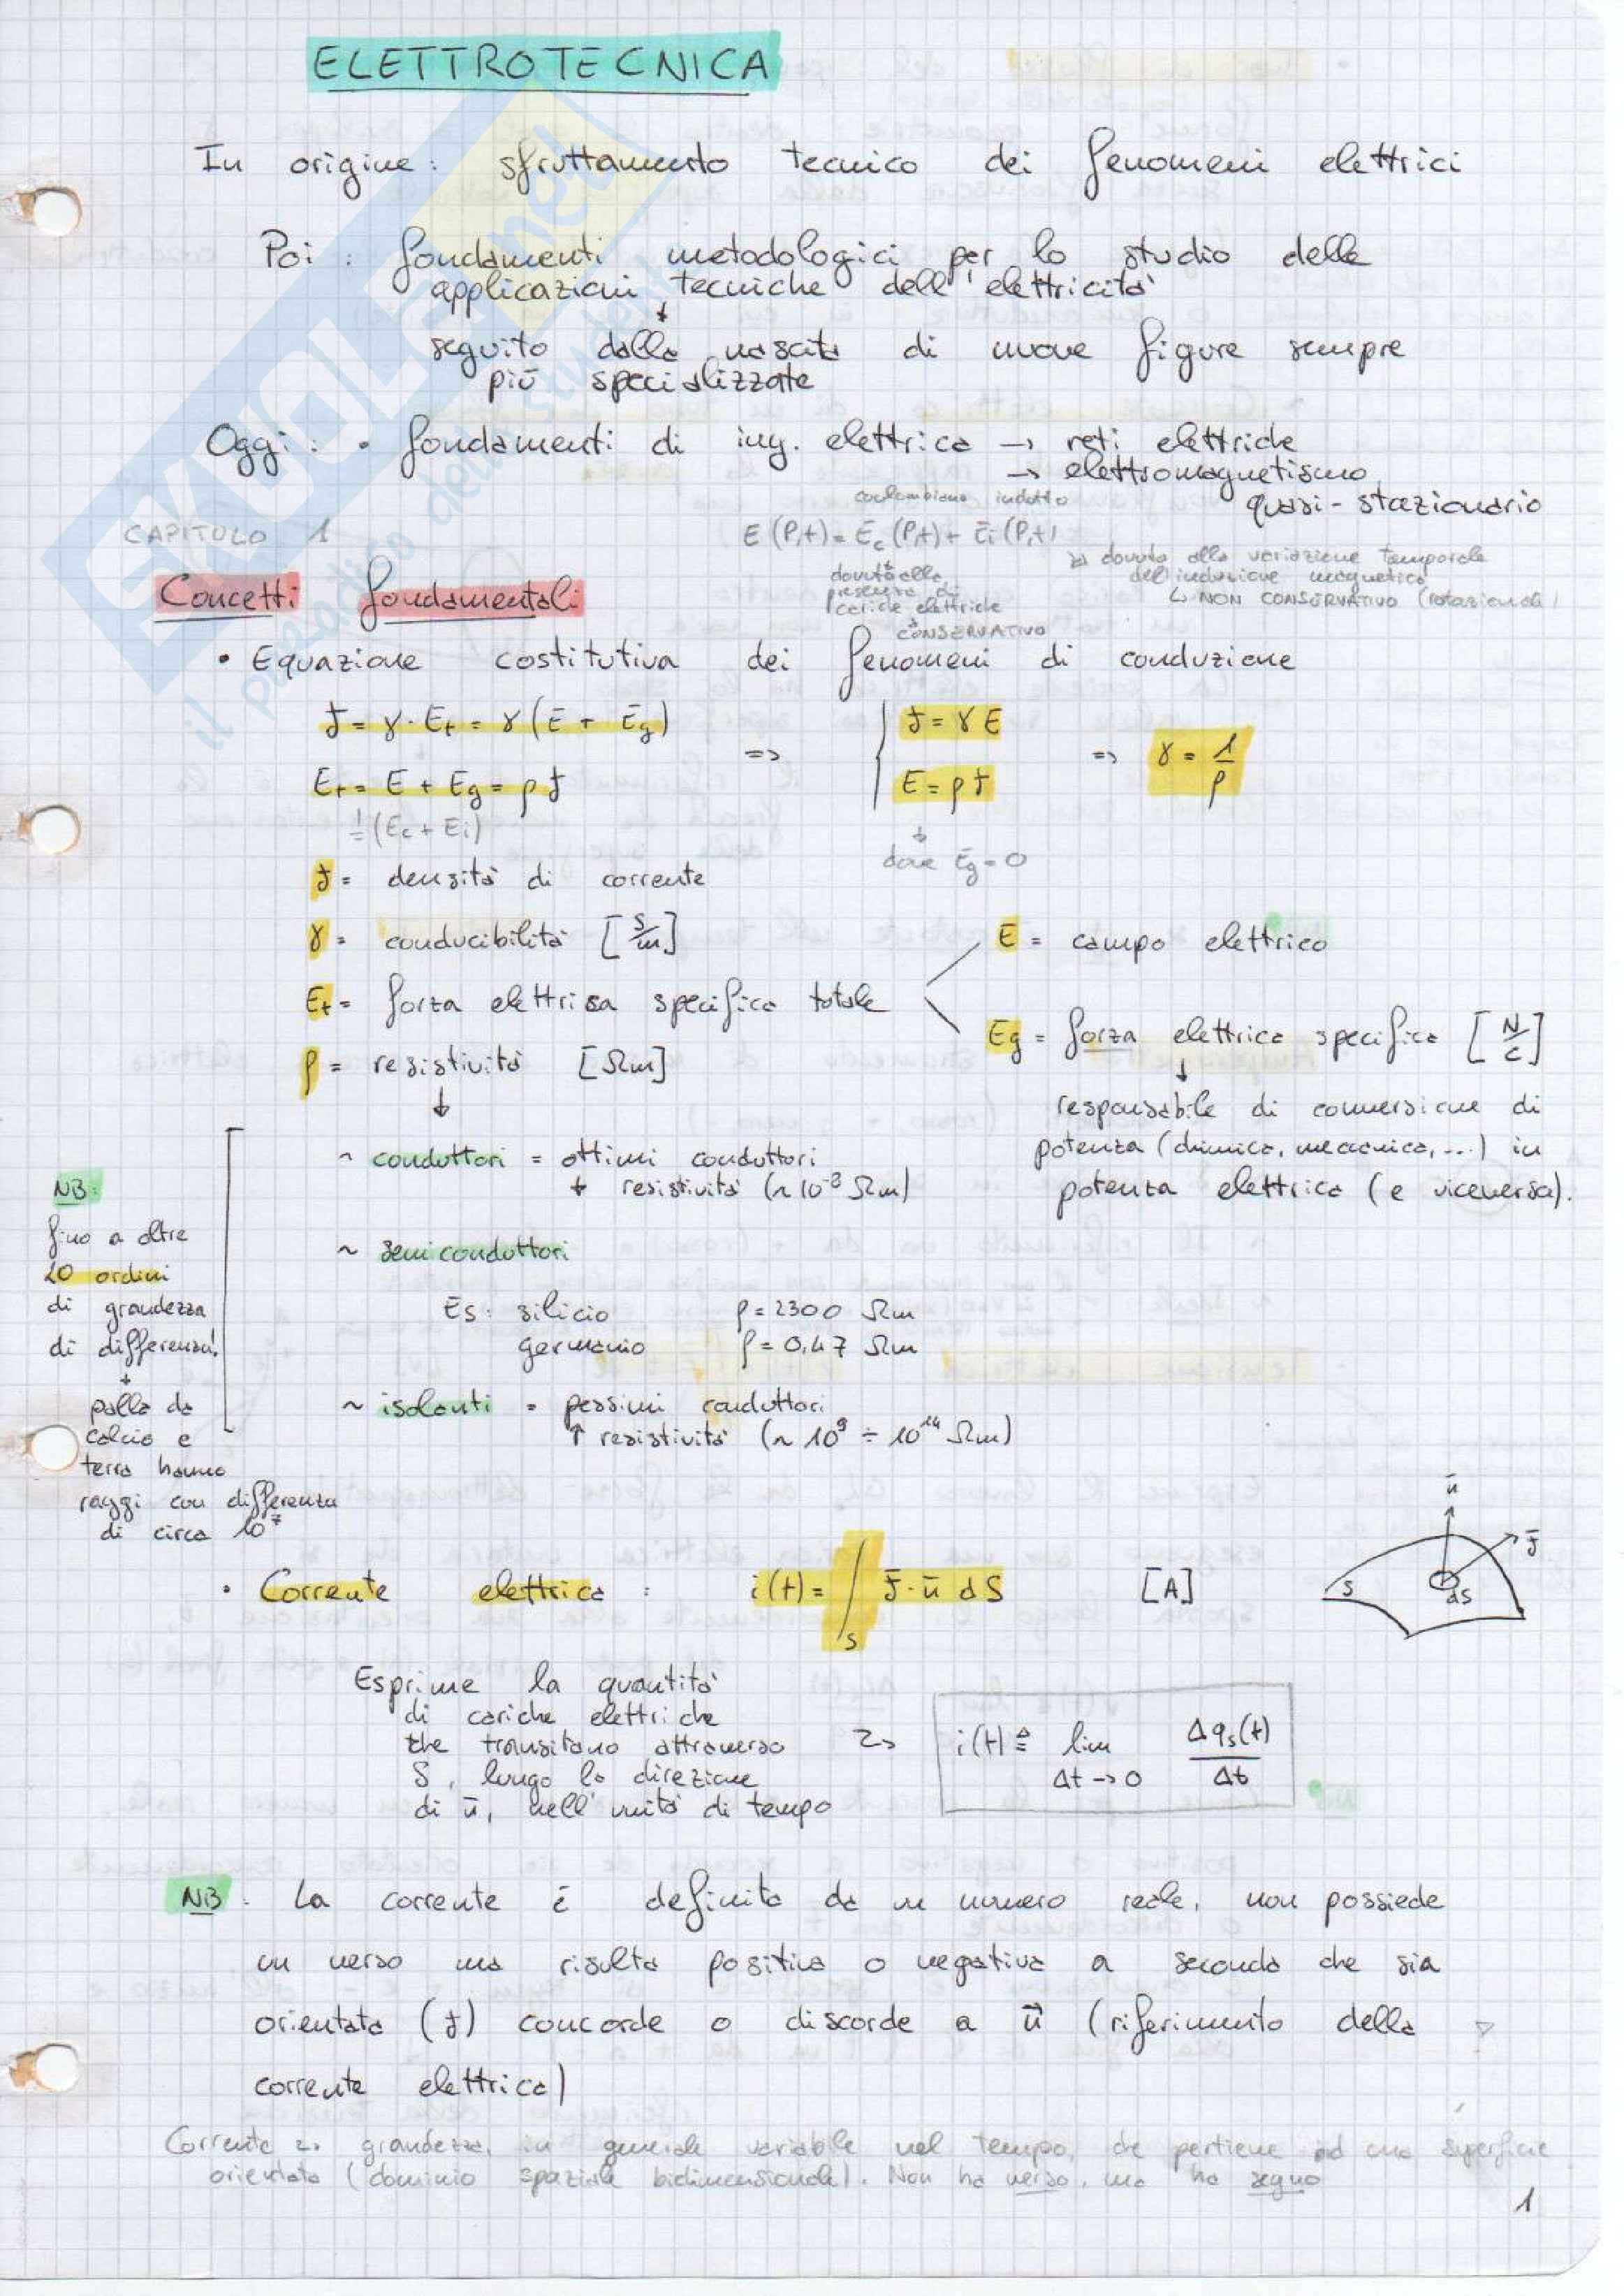 ELETTROTECNICA
In origine: sfruttamento tecnico dei fenomeni elettrici
Poi: fondamenti metodologici per lo studio delle
applicazioni tecniche dell'elettricità
↓
seguito dalla nascita di nuove figure sempre
più specializzate
Oggi: • fondamenti di ing. elettrica → reti elettriche
→ elettromagnetismo
quasi-stazionario
coulombiano indotto
CAPITOLO 1
E (P,t) = Ec (P,t) + Ei (P,t)
dovuto alla variazione temporale
dell'induzione magnetica
↳ NON CONSERVATIVO (rotazionale)
dovuto alla
presenza di
cariche elettriche
CONSERVATIVO
Concetti fondamentali
• Equazione costitutiva dei fenomeni di conduzione
J = γ · Et = γ (E + Eg) => J = γ E => γ = 1/ρ
Et = E + Eg = ρ J E = ρ J
= (Ec + Ei)
↓
dove Eg = 0
J = densità di corrente
γ = conducibilità [S/m]
E = campo elettrico
Et = forza elettrica specifica totale
Eg = forza elettrica specifica [N/C]
↓
responsabile di conversione di
potenza (chimica, meccanica, ...) in
potenza elettrica (e viceversa).
ρ = resistività [Ωm]
↓
~ conduttori = ottimi conduttori
↓ resistività (~ 10⁻⁸ Ωm)
~ semiconduttori
Es: silicio ρ = 2300 Ωm
germanio ρ = 0,47 Ωm
~ isolanti = pessimi conduttori
↑ resistività (~ 10⁹ ÷ 10¹⁴ Ωm)
NB:
fino a oltre
20 ordini
di grandezza
di differenza!
↓
palla da
calcio e
terra hanno
raggi con differenza
di circa 10⁷
• Corrente elettrica: i(t) = ∫S J̄ · ū dS [A]
ū
J̄
S
dS
Esprime la quantità
di cariche elettriche
che transitano attraverso
S, lungo la direzione
di ū, nell'unità di tempo
i(t) ≜ lim Δt→0 Δqs(t)/Δt
NB: La corrente è definita da un numero reale, non possiede
un verso ma risulta positiva o negativa a seconda che sia
orientata (J) concorde o discorde a ū (riferimento della
corrente elettrica)
Corrente → grandezza, in generale variabile nel tempo, che pertiene ad una superficie
orientata (dominio spaziale bidimensionale). Non ha verso, ma ha segno
1
SKUOLA.net
il paradiso dello studente